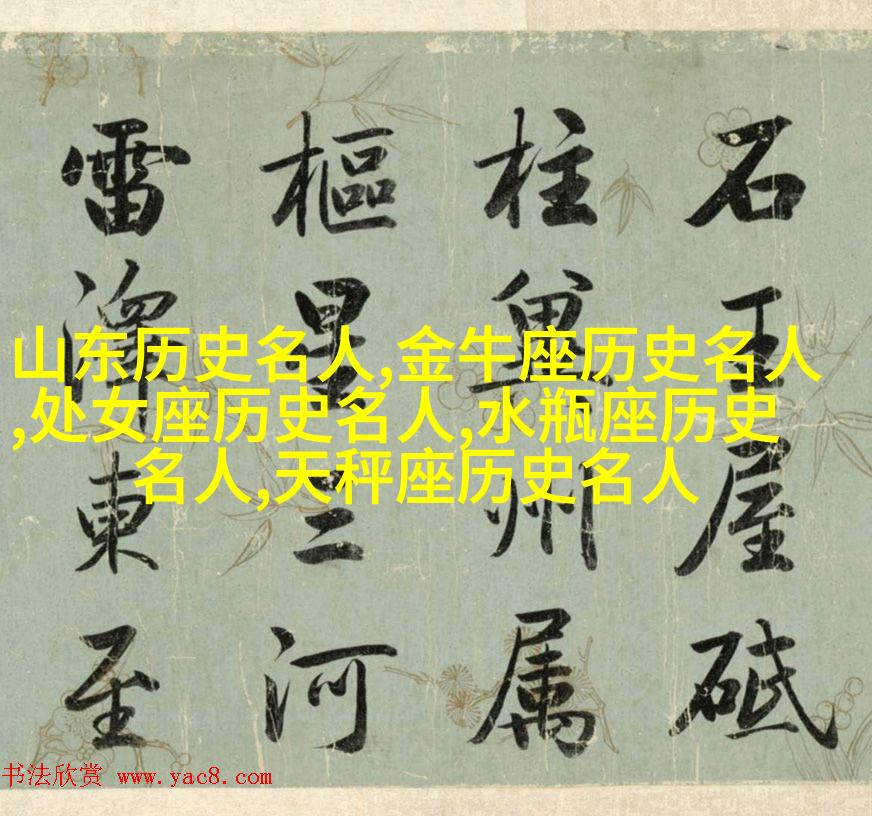 石王屋砥
柱冀州属
樞星三河
雷澤東至
山东历史名人,金牛座历史名人
,处女座历史名人,水瓶座历史
名人,天秤座历史名人
书法欣赏 www.yac8.com